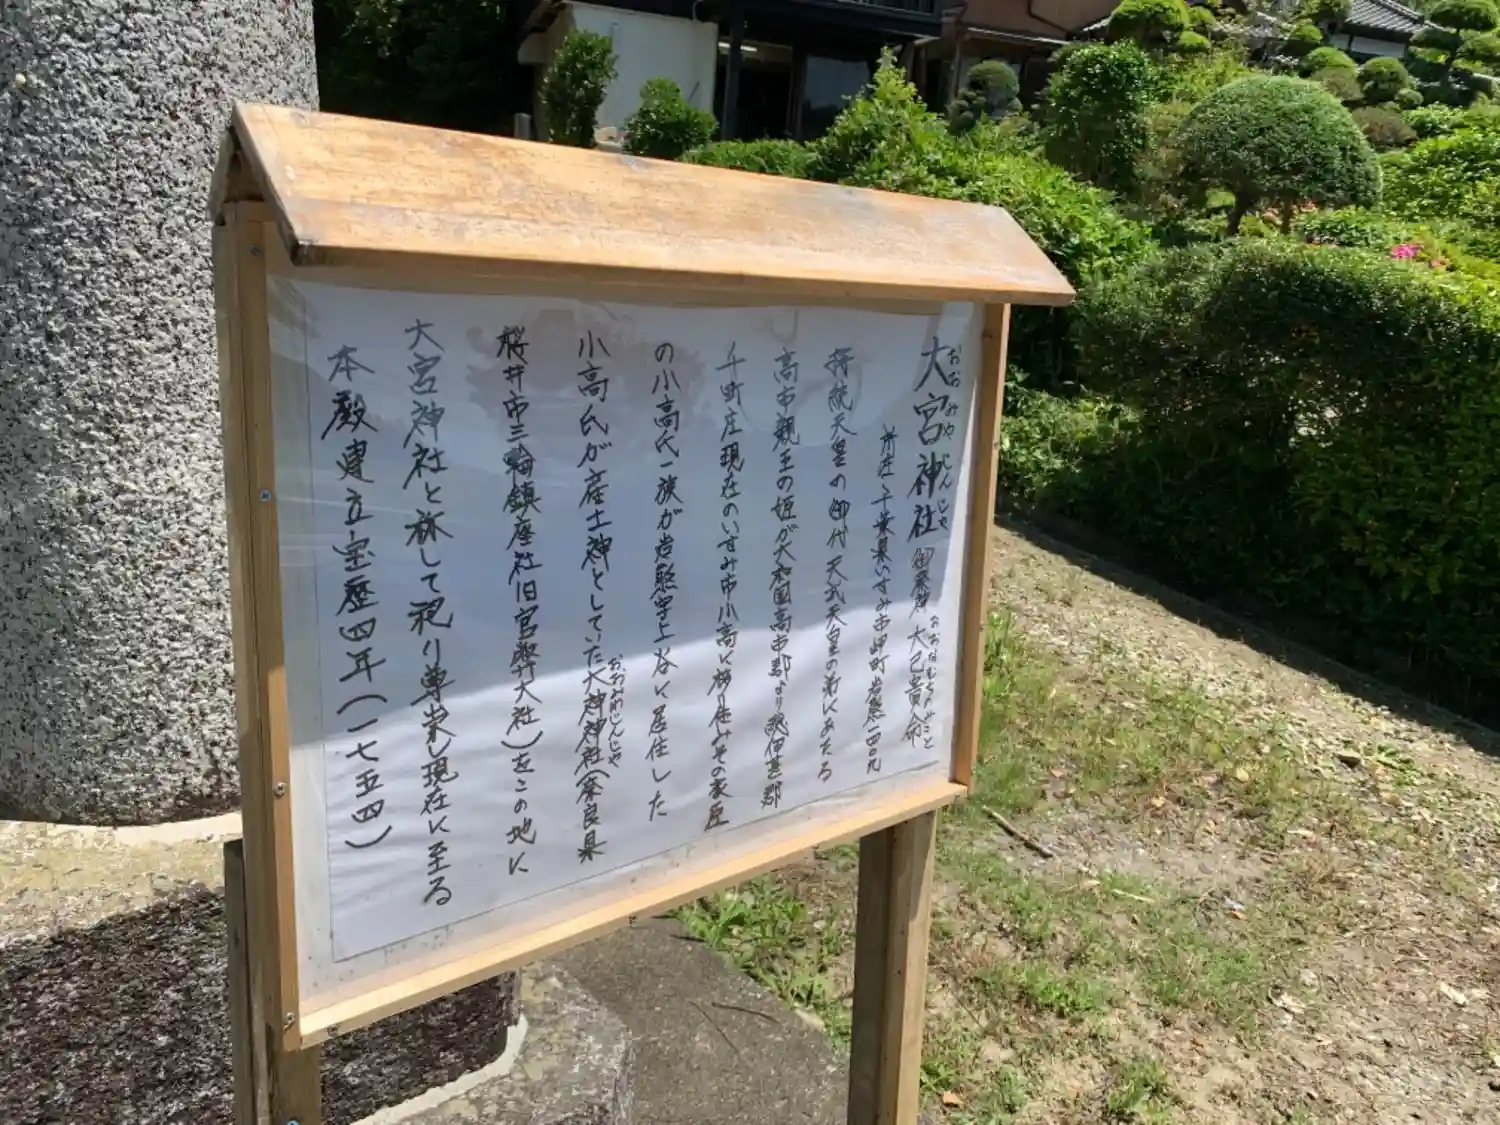 大宮神社 御祭神 大己貴命
おおみやじんじゃ おおなむちのみこと
所在 千葉県いすみ市岬町岩熊一四〇九
持統天皇の御代 天武天皇の弟にあたる
高市親王の姫が大和国高市郡より夷伊甚郡
千町庄現在のいすみ市小高に移り住みその家臣
の小高氏一族が岩熊字上谷に居住した
小高氏が産土神としていた大神神社(奈良県
おおみわじんじゃ
桜井市三輪鎮座社旧官弊大社)をこの地に
大宮神社と称して祀り尊崇し現在に至る
本殿建立宝歴四年(一七五四)